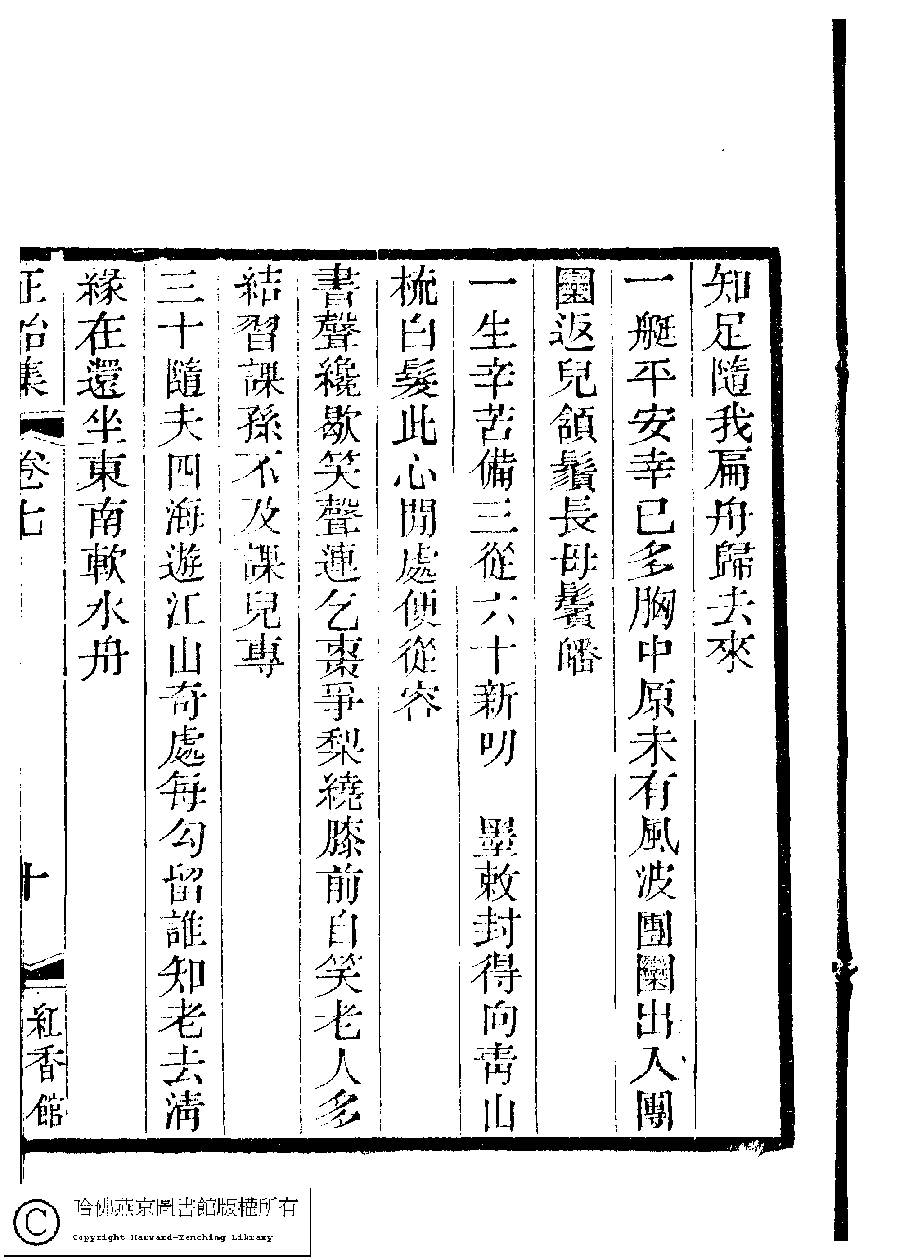 知足隨我扁舟歸去來
一艇平安幸已多胸中原未有風波團圞出入團
圞返兒頷鬚長母鬢皤
一生辛苦備三從六十新叨 墨敕封得向青山
梳白髮此心閒處便從容
書聲纔歇笑聲連乞棗爭梨繞膝前自笑老人多
結習課孫不及課兒專
三十隨夫四海遊江山奇處每勾留誰知老去清
緣在還坐東南軟水舟
正始集
卷七
十
紅香館
哈佛燕京圖書館版權所有
Copyright Harvard-Yenching Library